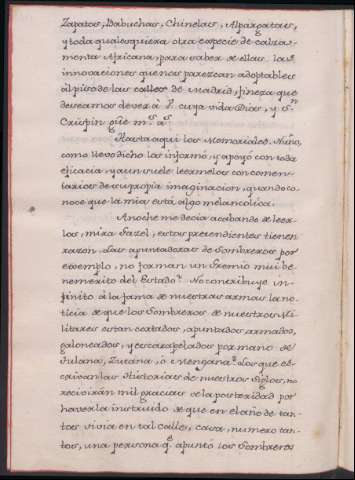 Zapatos, Babuchas, Chinelas, Alpargatas,
y toda qualesquiera otra especie de calza-
menta Africana, para saber de ellas las
innovaciones que nos parezcan adoptables
al piso de las calles de Madrid, fineza que
deseamos dever à V. cuya vida Dios, y S.n
Crispin gũe m.s a.s
Hasta aqui los Memoriales. Nuño,
como llevo dicho los informó, y apoyó con toda
eficacia, y aun suele leermelos con comen-
tarios de su propia imaginacion, quando co-
noce que la mia está algo melancolica.
Anoche me decia acabando de leer-
los, mira Gazel, estos pretendientes tienen
razon. Las apuntadoras de Sombreros por
exemplo, no forman un Gremio mui be-
nemerito del Estado? No contribuye in-
finito à la fama de nuestras armas la no-
ticia de que los Sombreros de nuestros Mi-
litares estan cortados, apuntados, armados,
galoneados, y escarapelados por mano de
Fulana, Zutana, ò Mengana? Los que es-
crivan las Historias de nuestros Siglos, no
recivirán mil gracias de la posteridad por
haverla instruido de que en el año de tan-
tos vivia en tal calle, casa, numero tan-
tos, una persona q.e apuntó los Sombreros